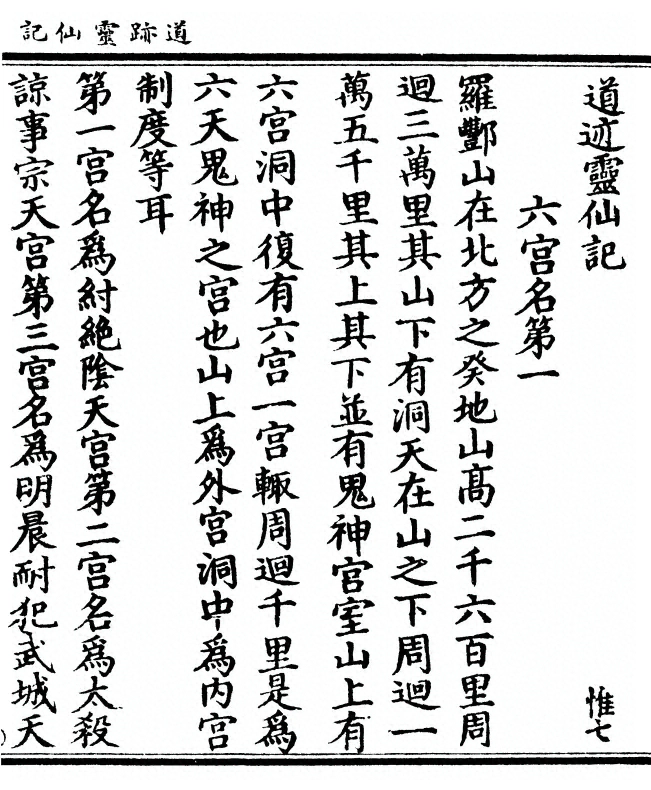 道跡靈仙記
道迹靈仙記
惟七
六宮名第一
羅酆山在北方之癸地山髙二千六百里周
迴三萬里其山下有洞天在山之下周迴一
萬五千里其上其下並有鬼神宮室山上有
六宮洞中復有六宮一宮輙周迴千里是爲
六天鬼神之宮也山上爲外宮洞中爲内宮
制度等耳
第一宮名爲紂絶陰天宮第二宮名爲太殺
諒事宗天宮第三宮名爲明晨耐犯武城天